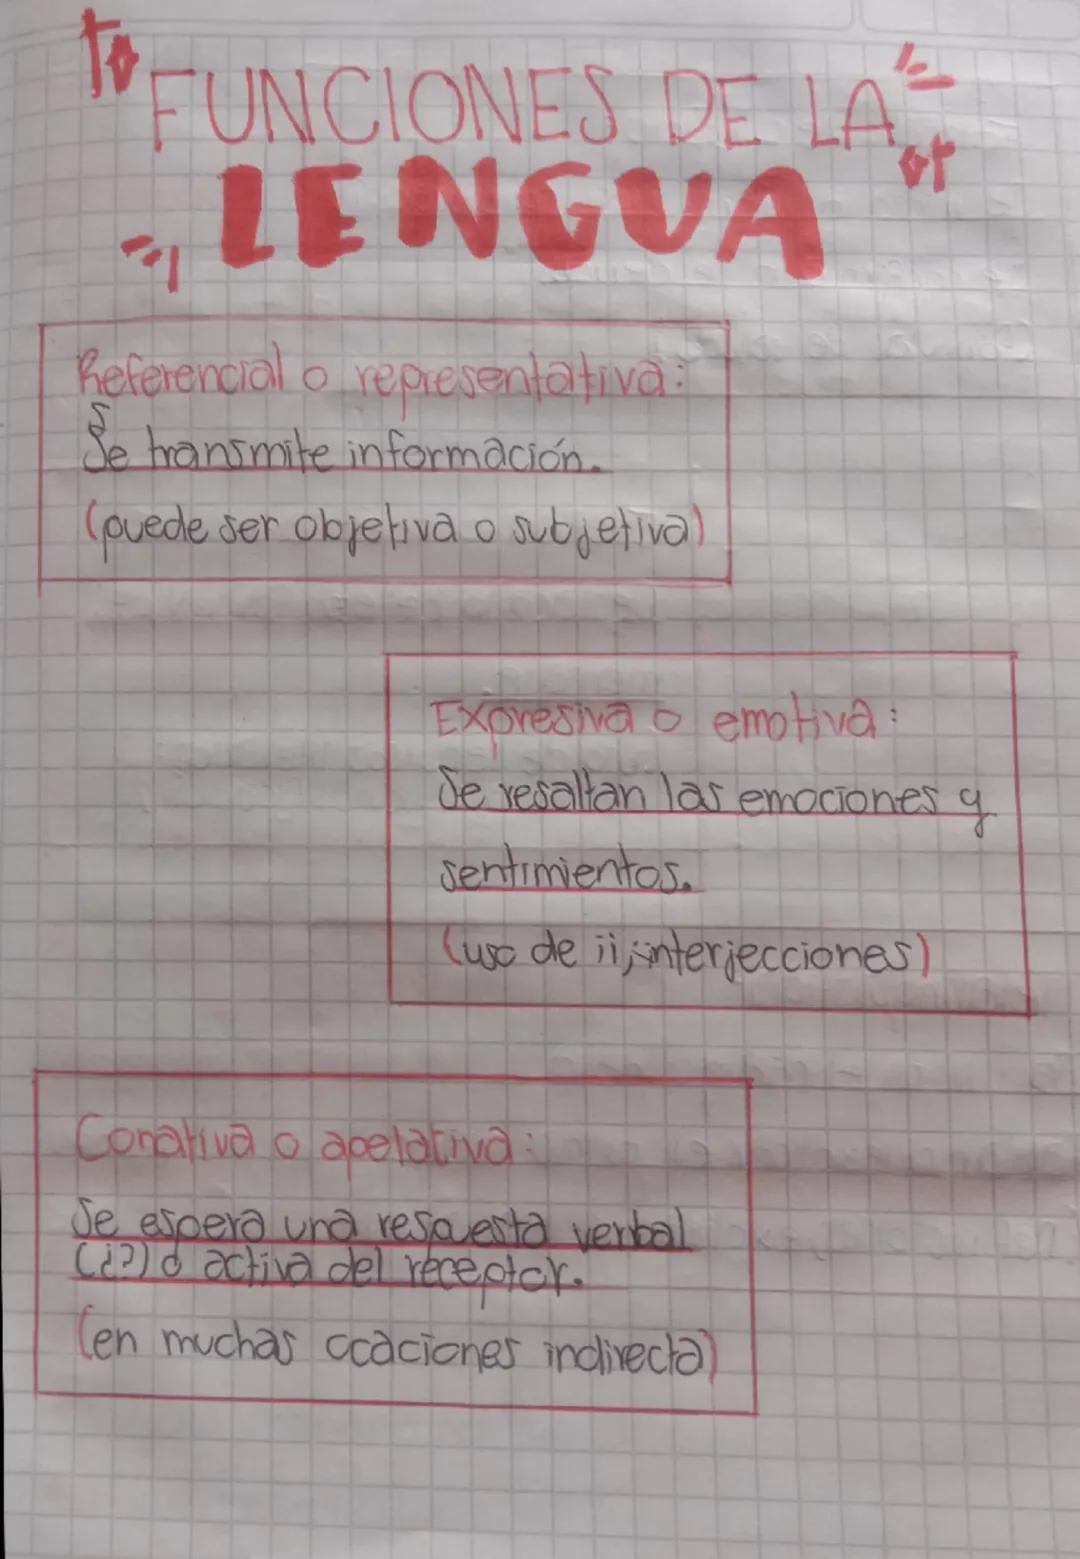 FUNCIONES DE LA
LENGUA
Referencial o representativa:
Se transmite información.
(puede ser objetiva o subjetiva)
Expresiva o emotiva:
Se resaltan las emociones y
sentimientos.
(uso de ¡¡, interjecciones)
Conativa o apelativa:
Se espera una respuesta verbal
(¿?) o activa del receptor.
(en muchas ocaciones indirecta)